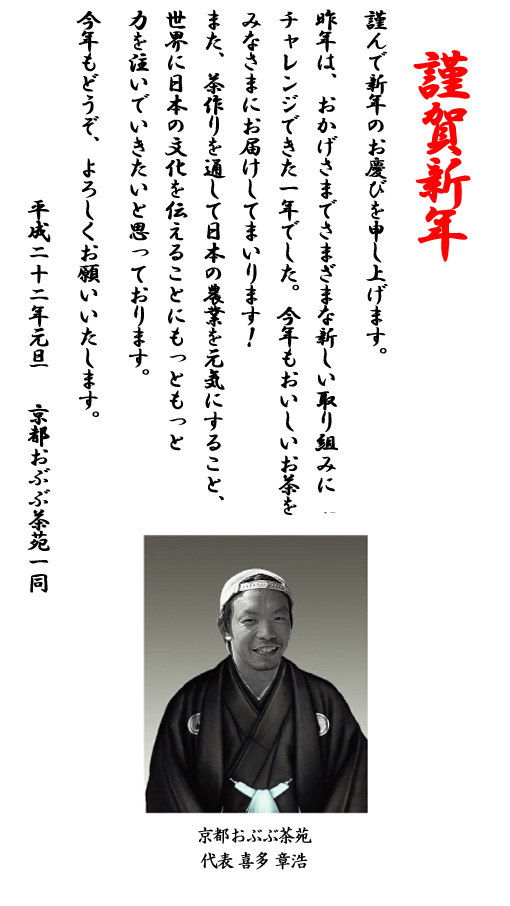 謹賀新年
謹んで新年のお慶びを申し上げます。
昨年は、おかげさまでさまざまな新しい取り組みに
チャレンジできた一年でした。今年もおいしいお茶を
みなさまにお届けしてまいります！
また、茶作りを通して日本の農業を元気にすること、
世界に日本の文化を伝えることにもっともっと
力を注いでいきたいと思っております。
今年もどうぞ、よろしくお願いいたします。
平成二十二年元旦　京都おぶぶ茶苑一同
京都おぶぶ茶苑
代表 喜多 章浩